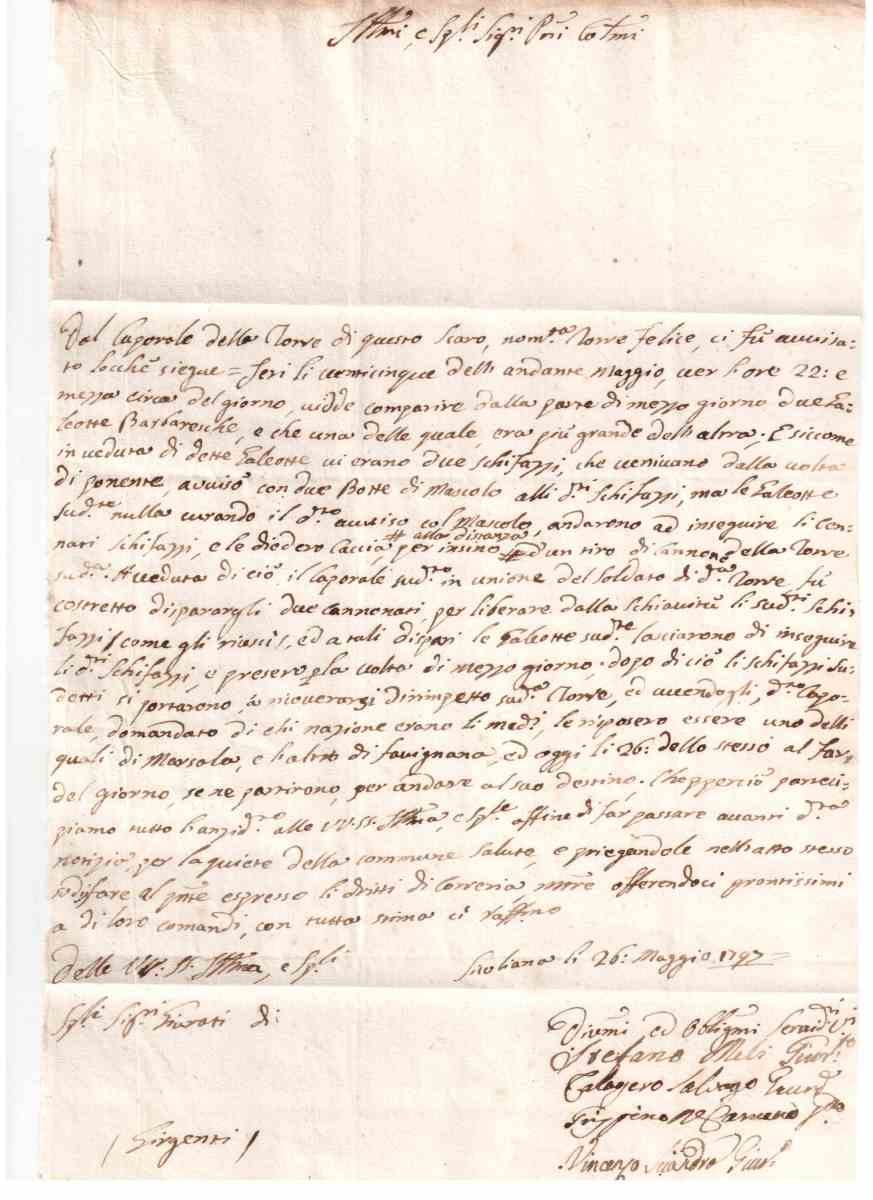 Ill.mi, e Sp.li Sig.ri P.ni Col.mi
Dal Caporale della Torre di questo Scaro, nom.ta Torre felice, ci fù avvisa-
to locchè siegue = Jeri li venticinque dell andante Maggio, ver l'ore 22: e
mezza circa del giorno, vidde comparire dalla parte di mezzo giorno due Ga-
leotte Barbaresche, e che una delle quale, era più grande dell altra; E siccome
in veduta di dette Galeotte vi erano due Schifazzi, che venivano dalla volta
di ponente, avvisò con due Botte di Mascolo alli d.ti Schifazzi, ma le Galeotte
sud.te nulla curando il d.to avviso col Mascolo, andarono ad inseguire li cen-
nati Schifazzi, e le diedero Caccia, per insino # alla distanza # d'un tiro di Cannone della Torre
sud.a. Avveduta di ciò il Caporale sud.to in unione del Soldato di d.ta Torre fù
costretto disparargli due Cannonati, per liberare dalla Schiavitù li sud.ti Schi-
fazzi / come gli riuscì /, ed a tali dispari le Galeotte sud.te lasciarono di inseguire
li d.ti Schifazzi, e presero la volta di mezzo giorno. dopo di ciò li Schifazzi su-
detti si portarono, a ricoverarsi dirimpetto sud.a Torre, ed avendogli, d.to Capo-
rale, domandato di chi nazione erano li med.i, le risposero essere uno delli
quali di Marsala, e l'altro di favignana, ed oggi li 26: dello stesso al far
del giorno, se ne partirono, per andare al suo destino; Chepperciò parteci-
piamo tutto l'anzid.to alle VV. SS. Ill.me, e Sp.li affine di far passare avanti d.ta
notizia, per la quiete della commune Salute, e priegandole nell'atto stesso
sodisfare al p.nte espresso li dritti di Correria, m.tre offerendoci prontissimi
a di loro comandi, con tutta stima ci raff.no
Delle VV: SS. Ill.me, e Sp.li Siculiana li 26: Maggio 1797 =
Sp.li Sig.ri Giurati di:
Div.mi ed Obblig.mi Servid.ri V.ri
Stefano Meli Giur.to
Calogero Salvago Giur.to
/ Girgenti /
Vincenzo Giur.to